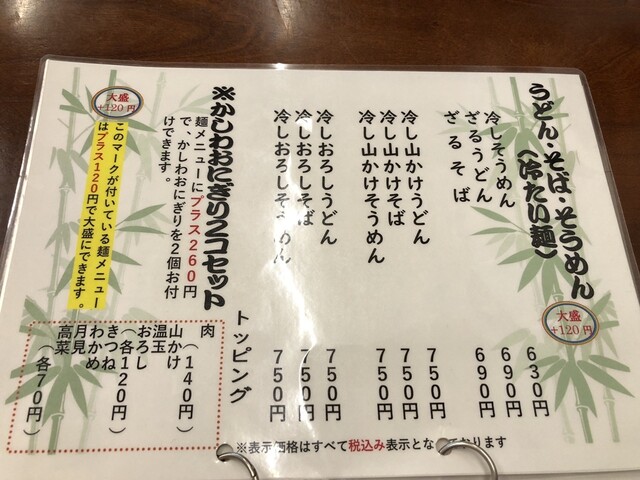 うどん・そば・そうめん
（冷たい麺）
大盛
+120円
冷しそうめん 630円
ざるうどん 690円
ざるそば 690円
冷し山かけうどん 750円
冷し山かけそば 750円
冷し山かけそうめん 750円
冷しおろしうどん 750円
冷しおろしそば 750円
冷しおろしそうめん 750円
※かしわおにぎり2コセット
麺メニューにプラス260円
で、かしわおにぎりを2個お付
けできます。
大盛
+120円
このマークが付いている麺メニュー
はプラス120円で大盛にできます。
トッピング
肉（140円）
山かけ
温玉
おろし
（各120円）
きつね
わかめ
月見
高菜
（各70円）
※表示価格はすべて税込み表示となっております